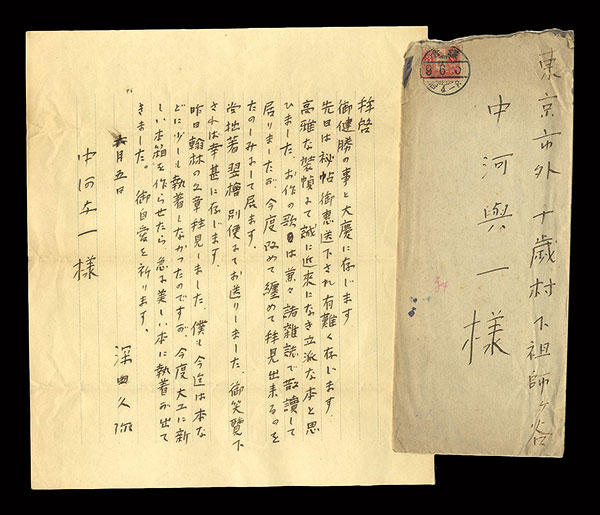 拝啓
御健勝の事と大慶に存じます
先日は秘帖御恵送下され有難く存じます。
高雅な装幀にて誠に近来になき立派な本と思
ひました。お作の歌は兼々諸雑誌で散讀して
居りましたが、今度改めて纏めて拝見出来るのを
たのしみにして居ます。
尚拙著翌檜別便にてお送りしました。御笑覧下
されば幸甚に存じます。
昨日翰林の文章拝見しました。僕も今迄は本な
どに少しも執着しなかつたのですが、今度大工に新
しい本箱を作らせたら急に美しい本に執着が出て
きました。御自愛を祈ります。
六月五日
深田久弥
中河与一様
東京市外千歳村下祖師ヶ谷
中河與一様
9.6.5